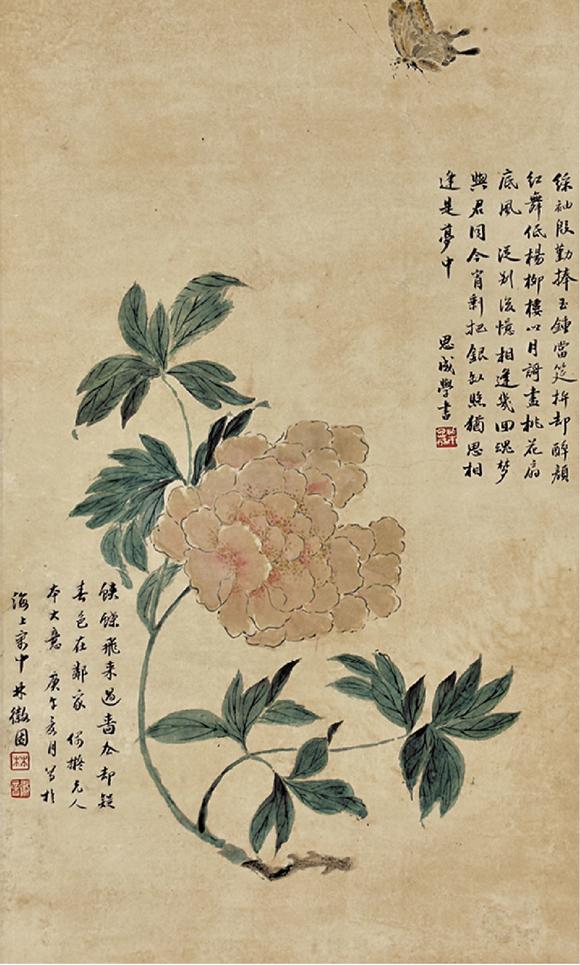 綵袖殷勤捧玉鍾當筵拚却醉顏
紅舞低楊柳樓心月謌盡桃花扇
底風 從別後憶相逢幾回魂夢
與君同今宵剩把銀釭照猶恐相
逢是夢中
思成學書
蛺蝶飛來過墻去却疑
春色在鄰家 偶擬元人
本大意 庚午夏月写於
海上寓中林徽因